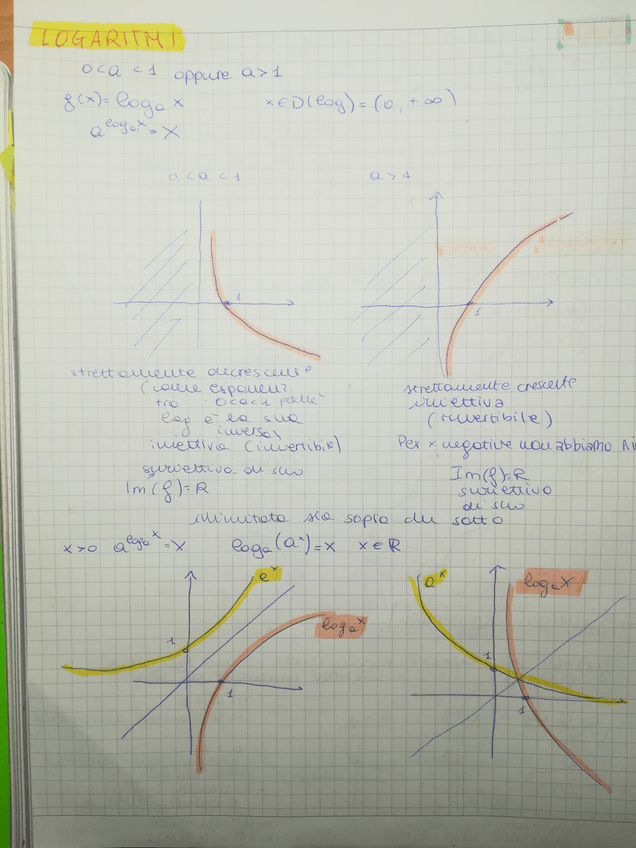 LOGARITMI
0<a<1 oppure a>1
f(x)=logₐ x x∈D(log)=(0,+∞)
a^(logₐx)=x
0<a<1 a>1
1
1
strettamente decrescente
(come esponen.
0<a<1 perché
log è la sua
inversa)
iniettiva (invertibile)
suriettiva di suo
Im(f)=R
strettamente crescente
iniettiva
(invertibile)
Per x negative non abbiamo
Im(f)=R
suriettiva
di suo
illimitata sia sopra che sotto
x>0 a^(logₐx)=x logₐ(aˣ)=x x∈R
aˣ
logₐx
1
1
aˣ
logₐx
1
1